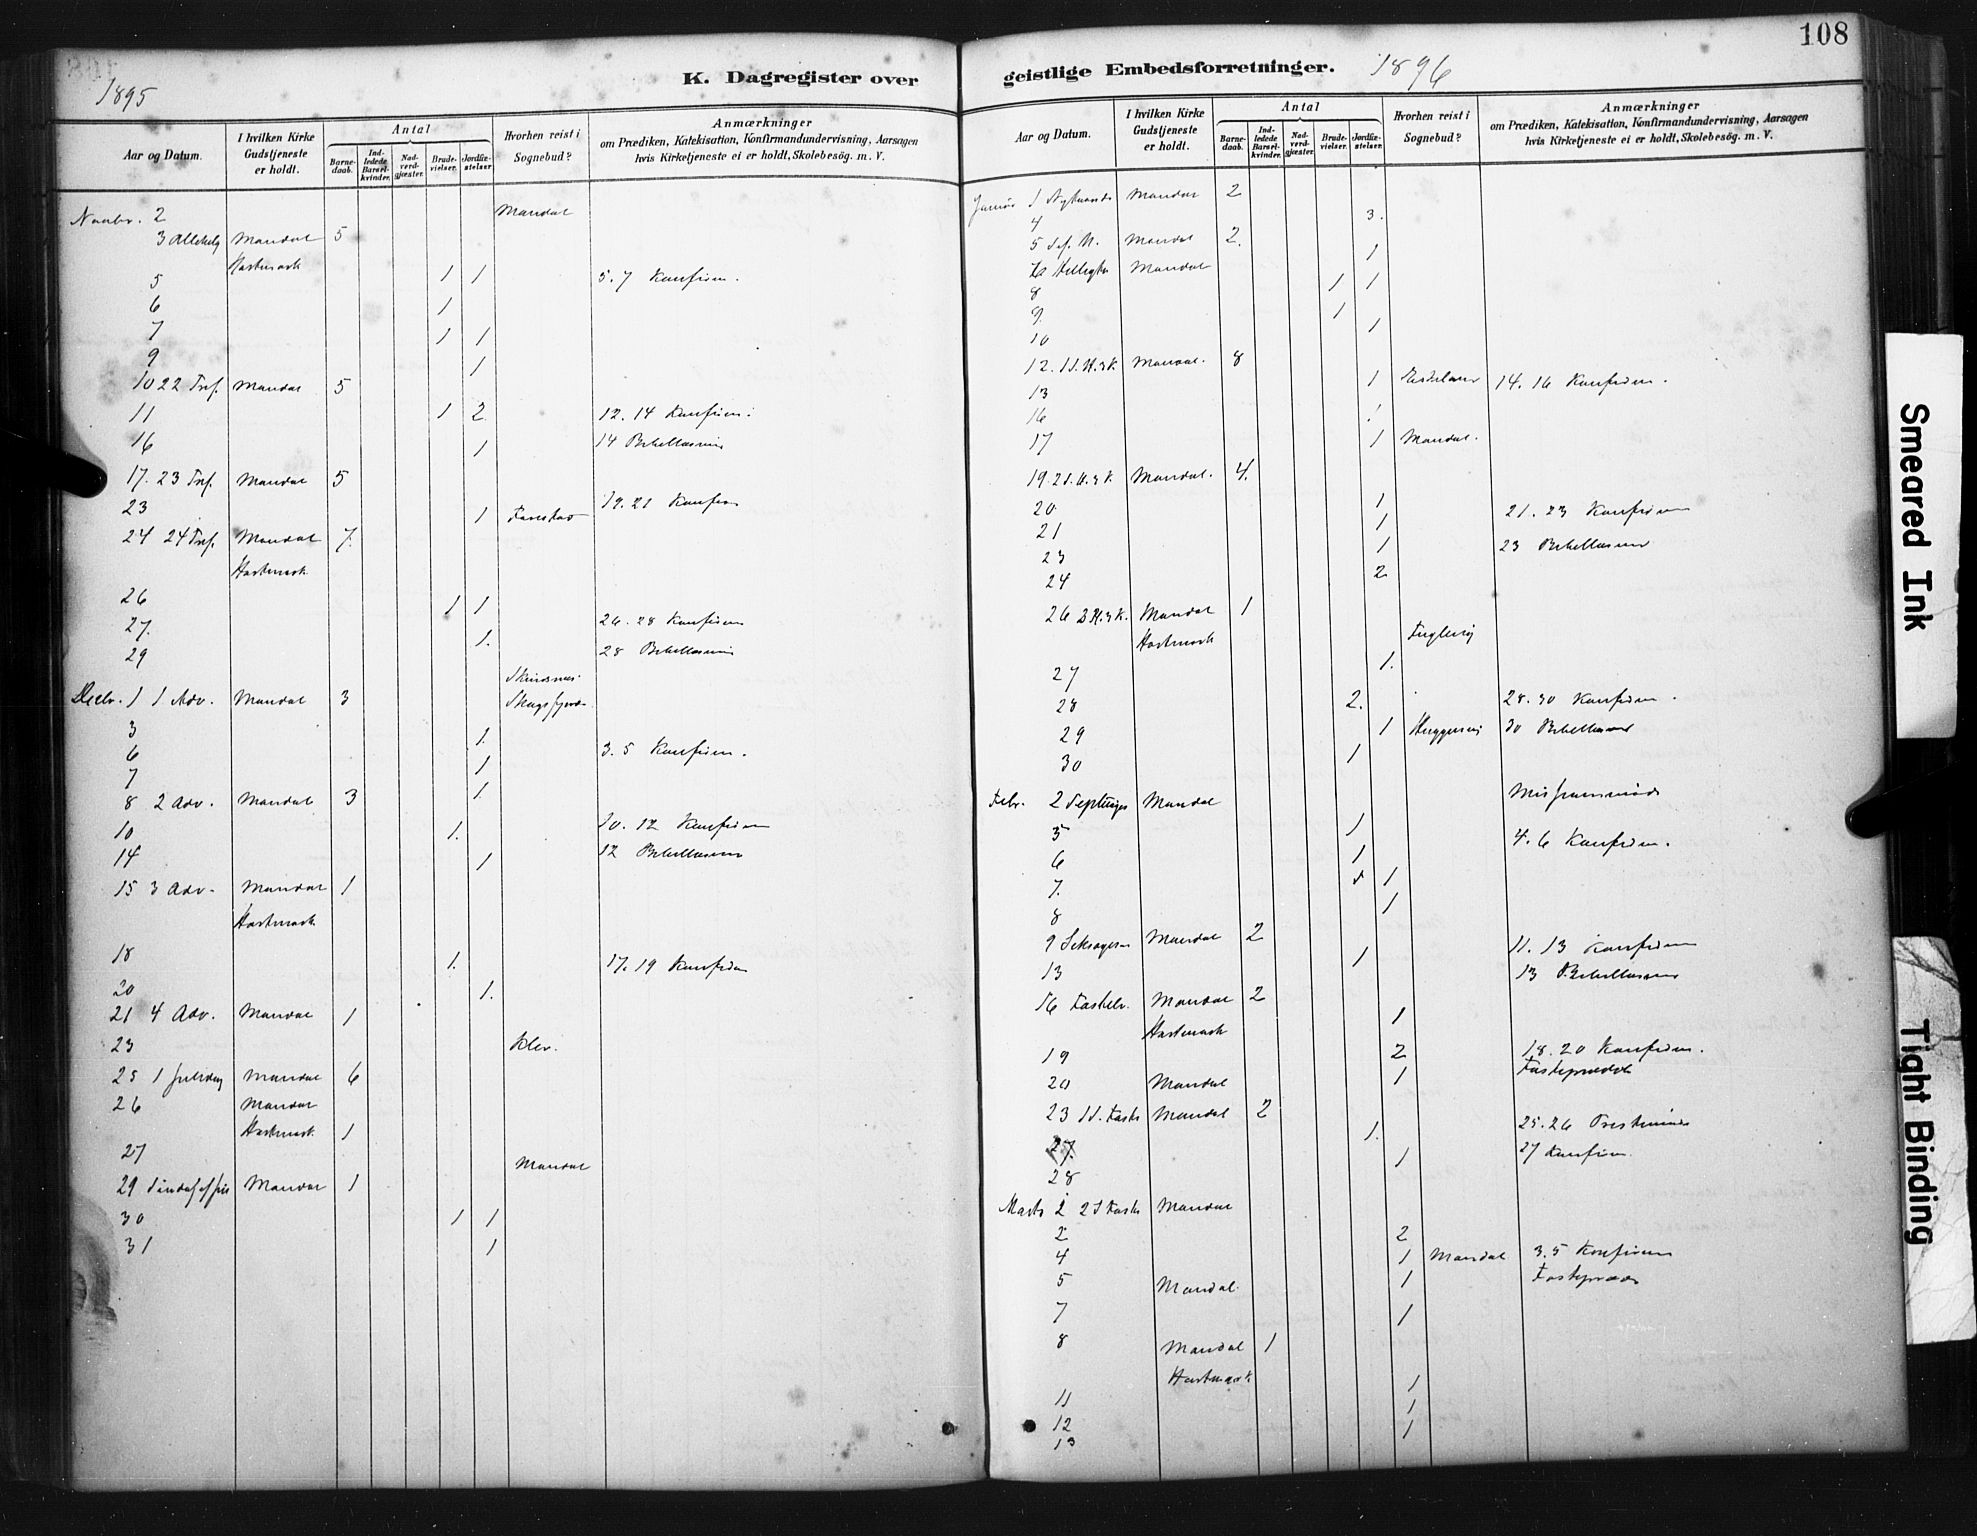 108
K. Dagregister over geistlige Embedsforretninger.
1895
Aar og Datum. | I hvilken Kirke Gudstjeneste er holdt. | Antal | Barne-daab. | Ind-ledede Barsel-kvinder. | Nad-verd-gjæster. | Brude-vielser. | Jordfæ-stelser. | Hvorhen reist i Sognebud? | Anmærkninger om Prædiken, Katekisation, Konfirmandundervisning, Aarsagen hvis Kirketjeneste ei er holdt, Skolebesög. m. V.
Novbr. 2 Mandal
3 Allehelg Mandal 5
Hartmark
5 1 1 5. 7 Konfirm.
6 1
7 1 1
9 1
10 22 Tref. Mandal 5
11 1 2 12. 14 Konfirm.
16 1 14 Bibellæsning
17. 23 Tref. Mandal 5
23 1 19. 21 Konfirm
24 24 Tref. Mandal 7.
Hartmark
26 1 1
27. 1. 26. 28 Konfirm
29 28 Bibellæsning
Skinsnes
Decbr. 1 1 Adv. Mandal 3
3 1.
6 1 3. 5 Konfirm.
7 1.
8 2 Adv. Mandal 3
10 1. 10. 12 Konfirm
14 1 12 Bibellæsning
15 3 Adv. Mandal 1
Hartmark
18 1. 17. 19 Konfirm
20 1.
21 4 Adv. Mandal 1
23 Klev.
25 1 Juledag Mandal 6
26 Mandal
Hartmark 1
27 Mandal
29 Mandal 1
30 1 1
31 1
1896
Aar og Datum. | I hvilken Kirke Gudstjeneste er holdt. | Antal | Barne-daab. | Ind-ledede Barsel-kvinder. | Nad-verd-gjæster. | Brude-vielser. | Jordfæ-stelser. | Hvorhen reist i Sognebud? | Anmærkninger om Prædiken, Katekisation, Konfirmandundervisning, Aarsagen hvis Kirketjeneste ei er holdt, Skolebesög. m. V.
Januar 1 Nytaarsd Mandal 2
4 3.
5 S. e. N. Mandal 2.
1
Mandal
8 1 1
9. 1
10 1
12. 1 S. H. 3 K. Mandal. 8
13 1 14. 16 Konfirm.
16 1
17 1 Mandal.
19. 2 S. H. 3 K Mandal. 4.
20. 1
21 1 21. 23 Konfirm
23 1 23 Bibellæsning
24 2
26 3 H. 3 K. Mandal 1
Hartmark
27 1.
28 2. 28. 30 Konfirm.
29 1 30 Bibellæsning
30 1
Febr. 2 Septuages Mandal
5 1
6 1 4. 6 Konfirm.
7. 1 1
8 1
9 Seksages Mandal 2
13 1 11. 13 Konfirm
13 Bibellæsning
16 Fastelv. Mandal 2
Hartmark 1
19 2 18. 20 Konfirm.
20 Mandal 1 Fasteprædik
23 1 S. Faste Mandal 2
27. 1. 25. 26 Prestemøde
28 1 27 Konfirm.
Marts 2 S Faste Mandal
2 2
4 1 Mandal 3. 5 Konfirm
5 Mandal. 1 Fastepræd
7 1
8 Mandal 1
Hartmark
11 1
12 1
13 1
Smeared Ink
Tight Binding